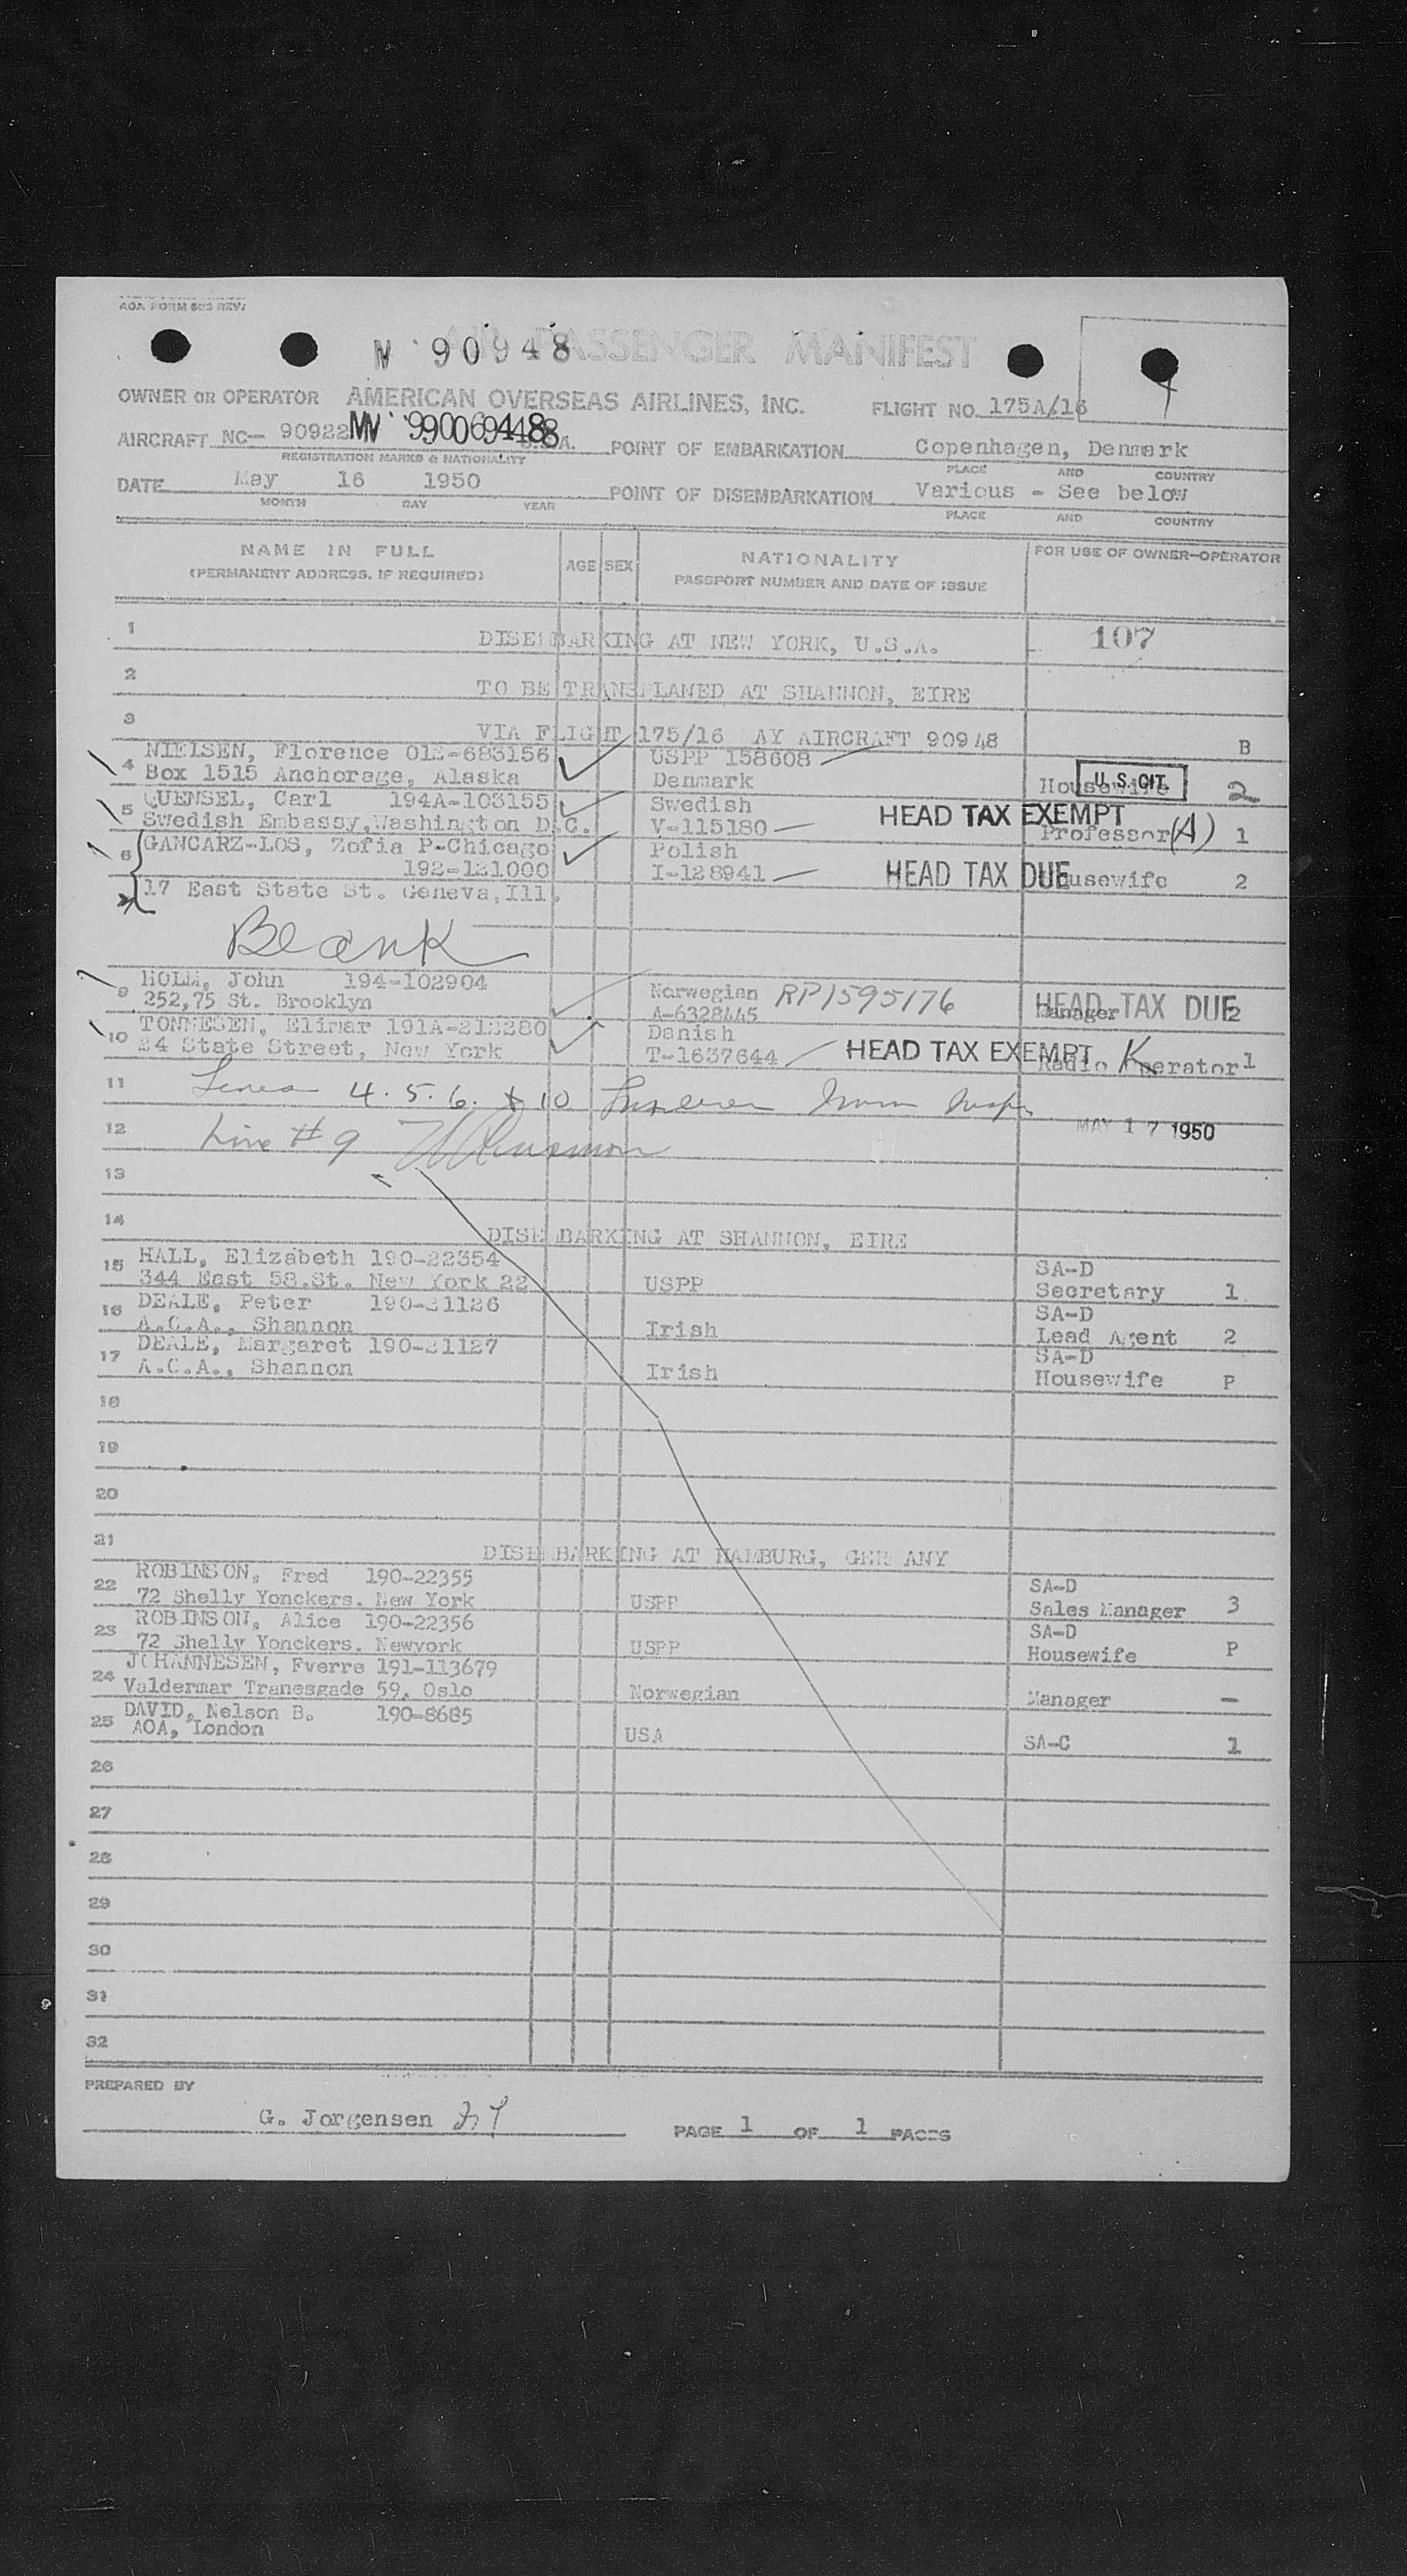 AOA FORM 603 REV.
N 90948 AIR PASSENGER MANIFEST
OWNER OR OPERATOR AMERICAN OVERSEAS AIRLINES, INC. FLIGHT NO. 175A/16
AIRCRAFT NC- 90922 U.S.A. POINT OF EMBARKATION Copenhagen, Denmark
REGISTRATION MARKS & NATIONALITY PLACE AND COUNTRY
DATE May 16 1950 POINT OF DISEMBARKATION Various - See below
MONTH DAY YEAR PLACE AND COUNTRY
NAME IN FULL AGE SEX NATIONALITY FOR USE OF OWNER-OPERATOR
(PERMANENT ADDRESS, IF REQUIRED) PASSPORT NUMBER AND DATE OF ISSUE
1 DISEMBARKING AT NEW YORK, U.S.A. 107
2 TO BE TRANSPLANED AT SHANNON, EIRE
3 VIA FLIGHT 175/16 MAY AIRCRAFT 90948 B
4 NIELSEN, Florence 012-683156 USPP 158608
Box 1515 Anchorage, Alaska Denmark Housewife U.S.CIT. 2
5 QUENSEL, Carl 194A-103155 Swedish HEAD TAX EXEMPT
Swedish Embassy, Washington D.C. V-115180 Professor (A) 1
6 GANCARZ-LOS, Zofia P-Chicago Polish
192-121000 I-128941 HEAD TAX DUE Housewife 2
17 East State St. Geneva, Ill.
Blank
9 HOLM, John 194-102904 Norwegian RP1595176
252,75 St. Brooklyn A-6328445 Manager HEAD TAX DUE 2
10 TONNESEN, Elimar 191A-212280 Danish
24 State Street, New York T-1637644 HEAD TAX EXEMPT Radio Operator 1
11 Lines 4. 5. 6. + 10
12 Line # 9 MAY 17 1950
13
14 DISEMBARKING AT SHANNON, EIRE
15 HALL, Elizabeth 190-22354 SA-D
344 East 58.St. New York 22 USPP Secretary 1
16 DEALE, Peter 190-21126 SA-D
A.O.A., Shannon Irish Lead Agent 2
17 DEALE, Margaret 190-21127 SA-D
A.O.A., Shannon Irish Housewife P
18
19
20
21 DISEMBARKING AT HAMBURG, GERMANY
22 ROBINSON, Fred 190-22355 SA-D
72 Shelly Yonckers. New York USPP Sales Manager 3
23 ROBINSON, Alice 190-22356 SA-D
72 Shelly Yonckers. Newvork USPP Housewife P
24 JOHANNESEN, Fverre 191-113679
Valdermar Tranesgade 59. Oslo Norwegian Manager -
25 DAVID, Nelson B. 190-8685
AOA, London USA SA-C 1
26
27
28
29
30
31
32
PREPARED BY
G. Jorgensen PAGE 1 OF 1 PAGES